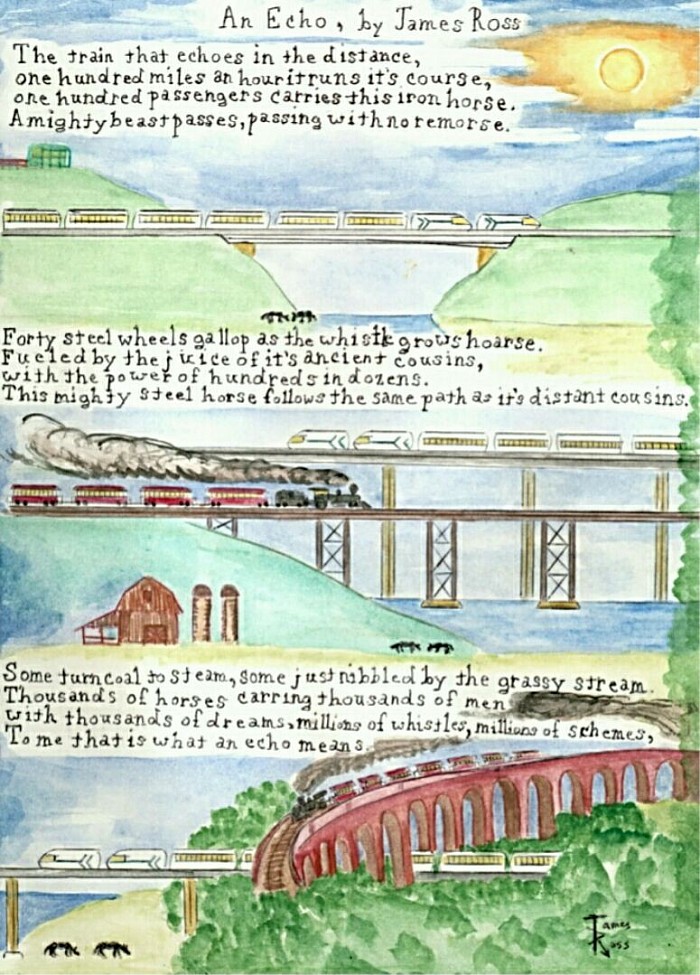 An Echo, by James Ross
The train that echoes in the distance,
one hundred miles an hour it runs it's course,
one hundred passengers carries this iron horse.
A mighty beast passes, passing with no remorse.
Forty steel wheels gallop as the whistle grows hoarse.
Fueled by the juice of it's ancient cousins,
with the power of hundreds in dozens.
This mighty steel horse follows the same path as it's distant cousins.
Some turn coal to steam, some just nibbled by the grassy stream.
Thousands of horses carring thousands of men
with thousands of dreams, millions of whistles, millions of schemes,
To me that is what an echo means.
James
Ross